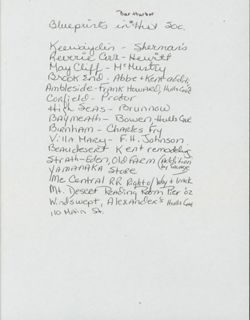 Bar Harbor
Blueprints in Hist Soc.
Keewaydin - Sherman's
Reverie Cove - Hewitt
May Cliff - McMurtry
Brook End - Abbe + Kent addit.
Ambleside - Frank Howard, Hulls Cove
Corfield - Proctor
High Seas - Brunnow
Baymeath - Bowen, Hulls Cove
Burnham - Charles Fry
Villa Mary - F.H. Johnson
Beaudesert Kent remodeling
Strath-Eden, Old Farm (Addition by Savage
YAMANAKA Store
Me Central RR Right of Way + track
Mt. Desert Reading Room Pier '02
Windswept, Alexander's Hulls Cove
110 Main St.